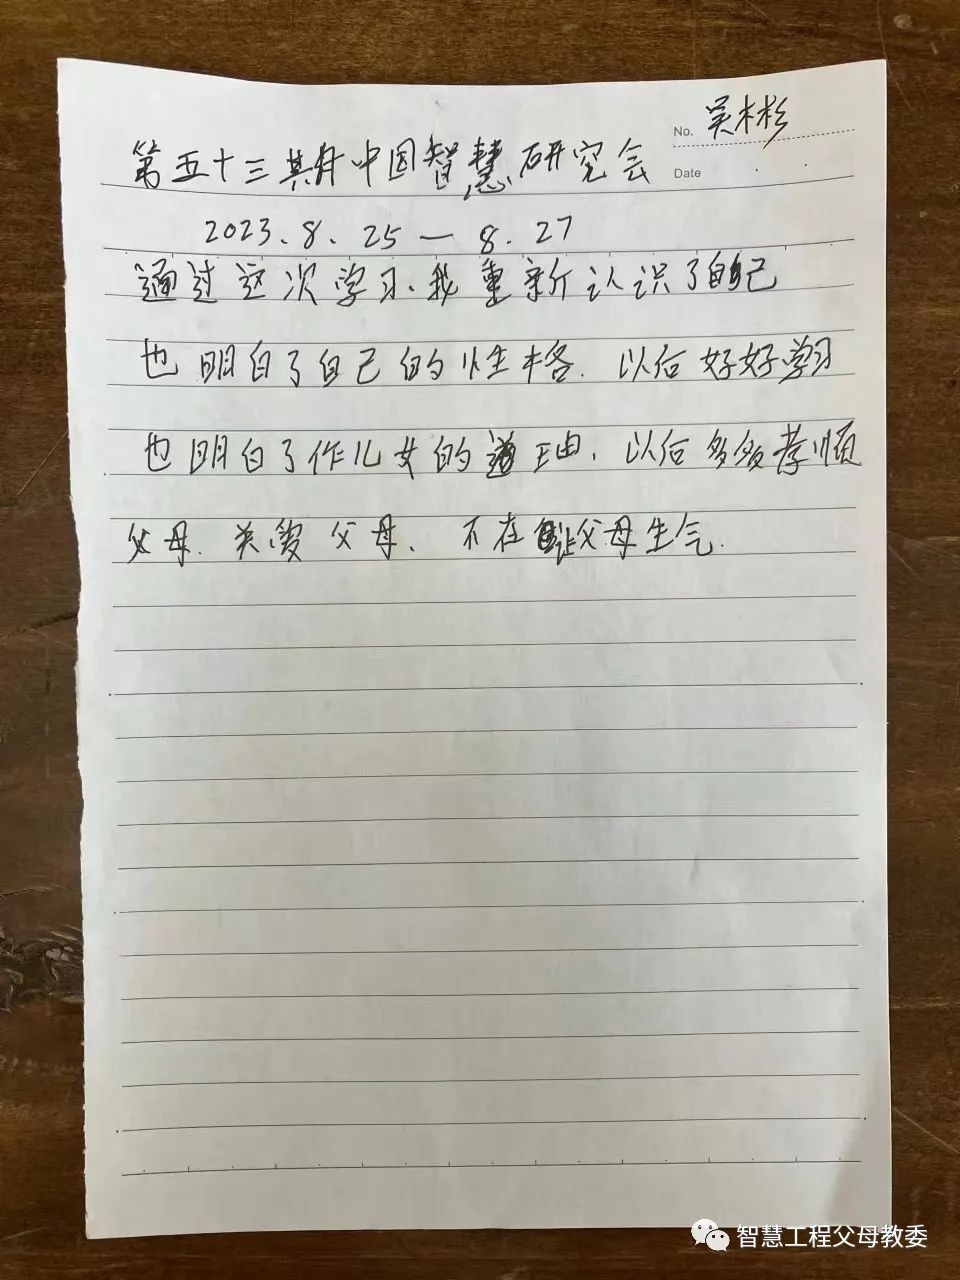 No. 吴木彬
Date
第五十三其月中国智慧研究会
2023.8.25—8.27
通过这次学习、我重新认识了自己
也明白了自己的性格.以后好好学习
也明白了作儿女的道理、以后多多孝顺
父母.关爱父母、不在让父母生气.
智慧工程父母教委